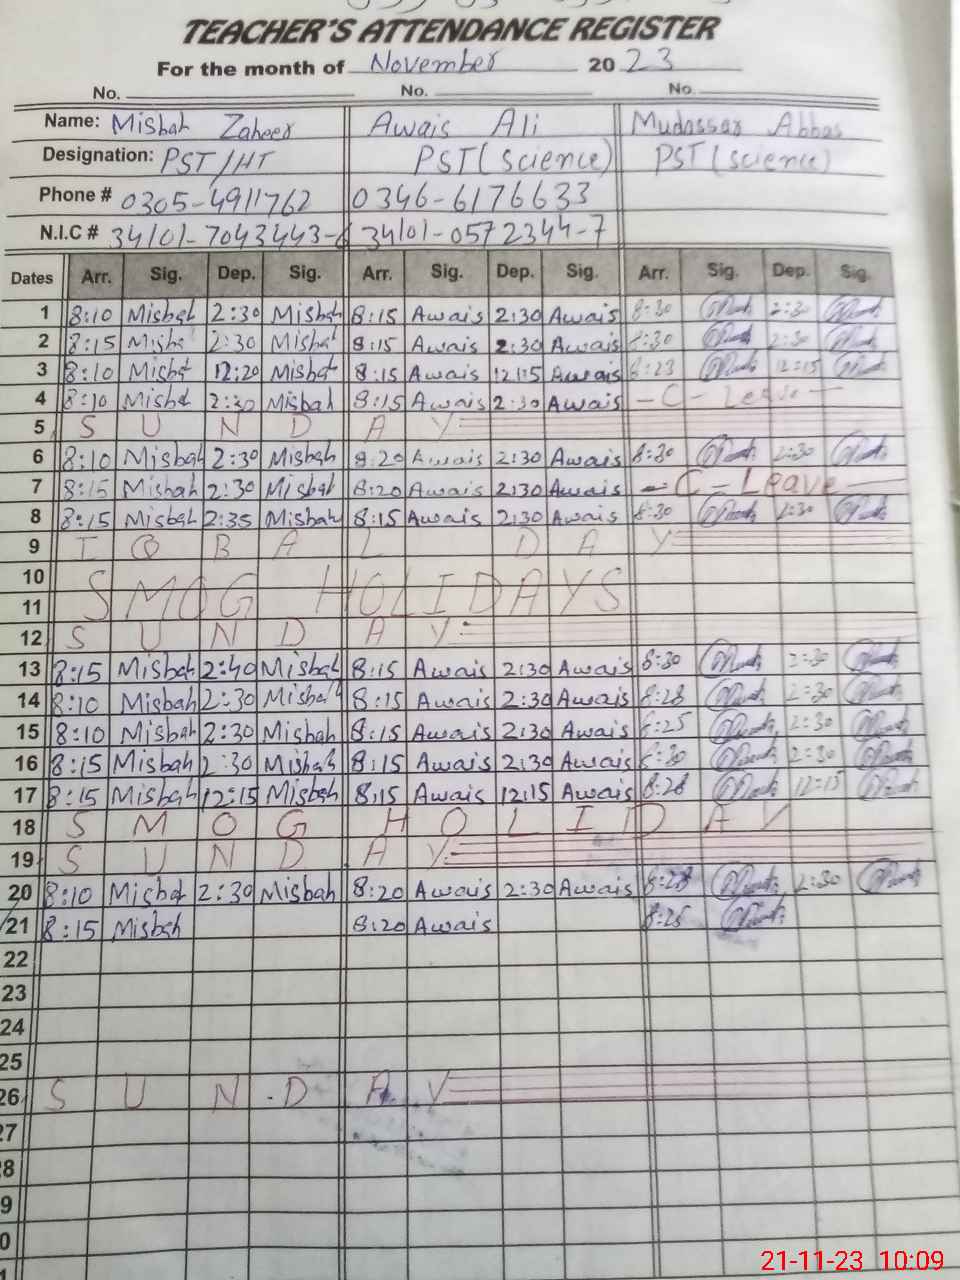 TEACHER'S ATTENDANCE REGISTER
For the month of November 2023
No. No. No.
Name: Misbah Zaheer Awais Ali Mudassar Abbas
Designation: PST/HT PST(science) PST(science)
Phone # 0305-4911762 0346-6176633
N.I.C # 34101-7043443-6 34101-0572344-7
Dates Arr. Sig. Dep. Sig. Arr. Sig. Dep. Sig. Arr. Sig. Dep. Sig.
1 8:10 Misbah 2:30 Misbah 8:15 Awais 2:30 Awais 8:30 2:30
2 8:15 Misba 2:30 Misbah 8:15 Awais 2:30 Awais 8:30 2:30
3 8:10 Misbah 12:20 Misbah 8:15 Awais 12:15 Awais 8:23 12:15
4 8:10 Misbah 2:30 Misbah 8:15 Awais 2:30 Awais - C - Leave -
5 S U N D A Y
6 8:10 Misbah 2:30 Misbah 8:20 Awais 2:30 Awais 8:30 2:30
7 8:15 Misbah 2:30 Misbah 8:20 Awais 2:30 Awais - C - Leave -
8 8:15 Misbah 2:35 Misbah 8:15 Awais 2:30 Awais 8:30 2:30
9 I Q B A L D A Y
10
SMOG HOLIDAYS
11
12 S U N D A Y
13 8:15 Misbah 2:40 Misbah 8:15 Awais 2:30 Awais 8:30 2:30
14 8:10 Misbah 2:30 Misbah 8:15 Awais 2:30 Awais 8:28 2:30
15 8:10 Misbah 2:30 Misbah 8:15 Awais 2:30 Awais 8:25 2:30
16 8:15 Misbah 2:30 Misbah 8:15 Awais 2:30 Awais 8:30 2:30
17 8:15 Misbah 12:15 Misbah 8:15 Awais 12:15 Awais 8:28 12:15
18 S M O G H O L I D A Y
19 S U N D A Y
20 8:10 Misbah 2:30 Misbah 8:20 Awais 2:30 Awais 8:28 2:30
21 8:15 Misbah 8:20 Awais 8:25
22
23
24
25
26 S U N D A Y
27
8
9
0
21-11-23 10:09